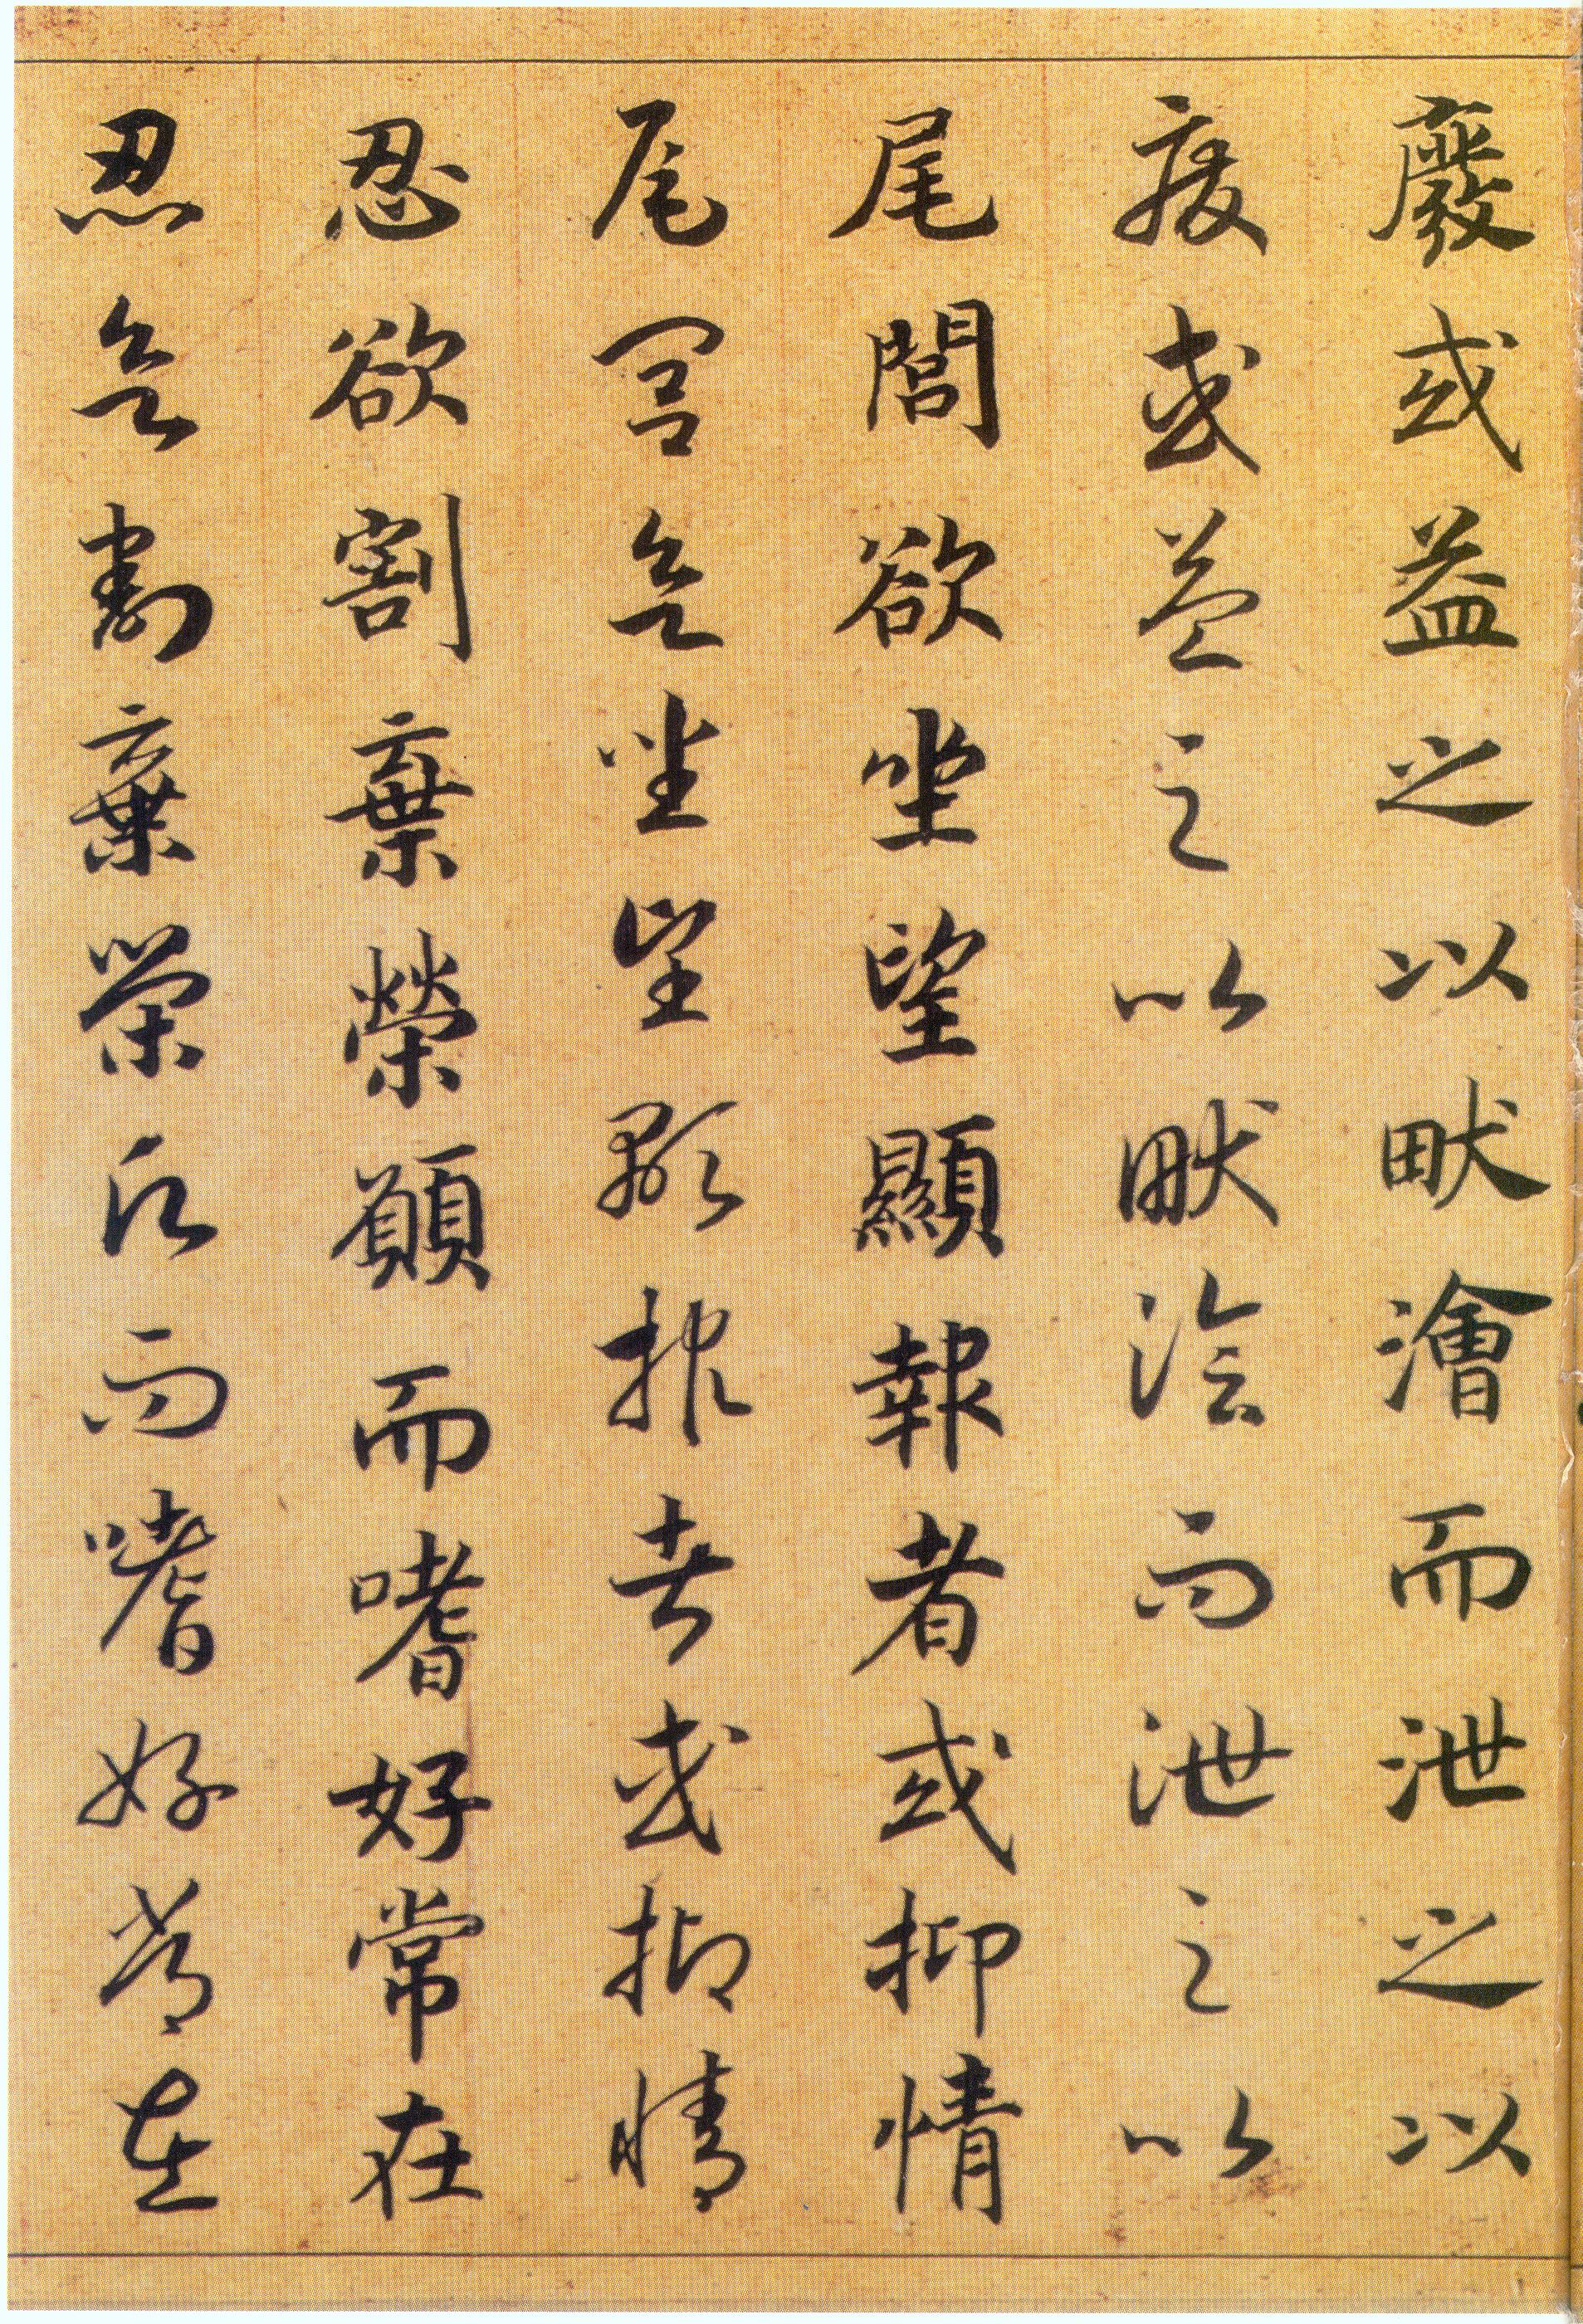 廢或益之以畎澮而泄之以
廢或益之以畎澮而泄之以
尾閭欲坐望顯報者或抑情
尾閭欲坐望顯報者或抑情
忍欲割棄榮願而嗜好常在
忍欲割棄榮願而嗜好常在